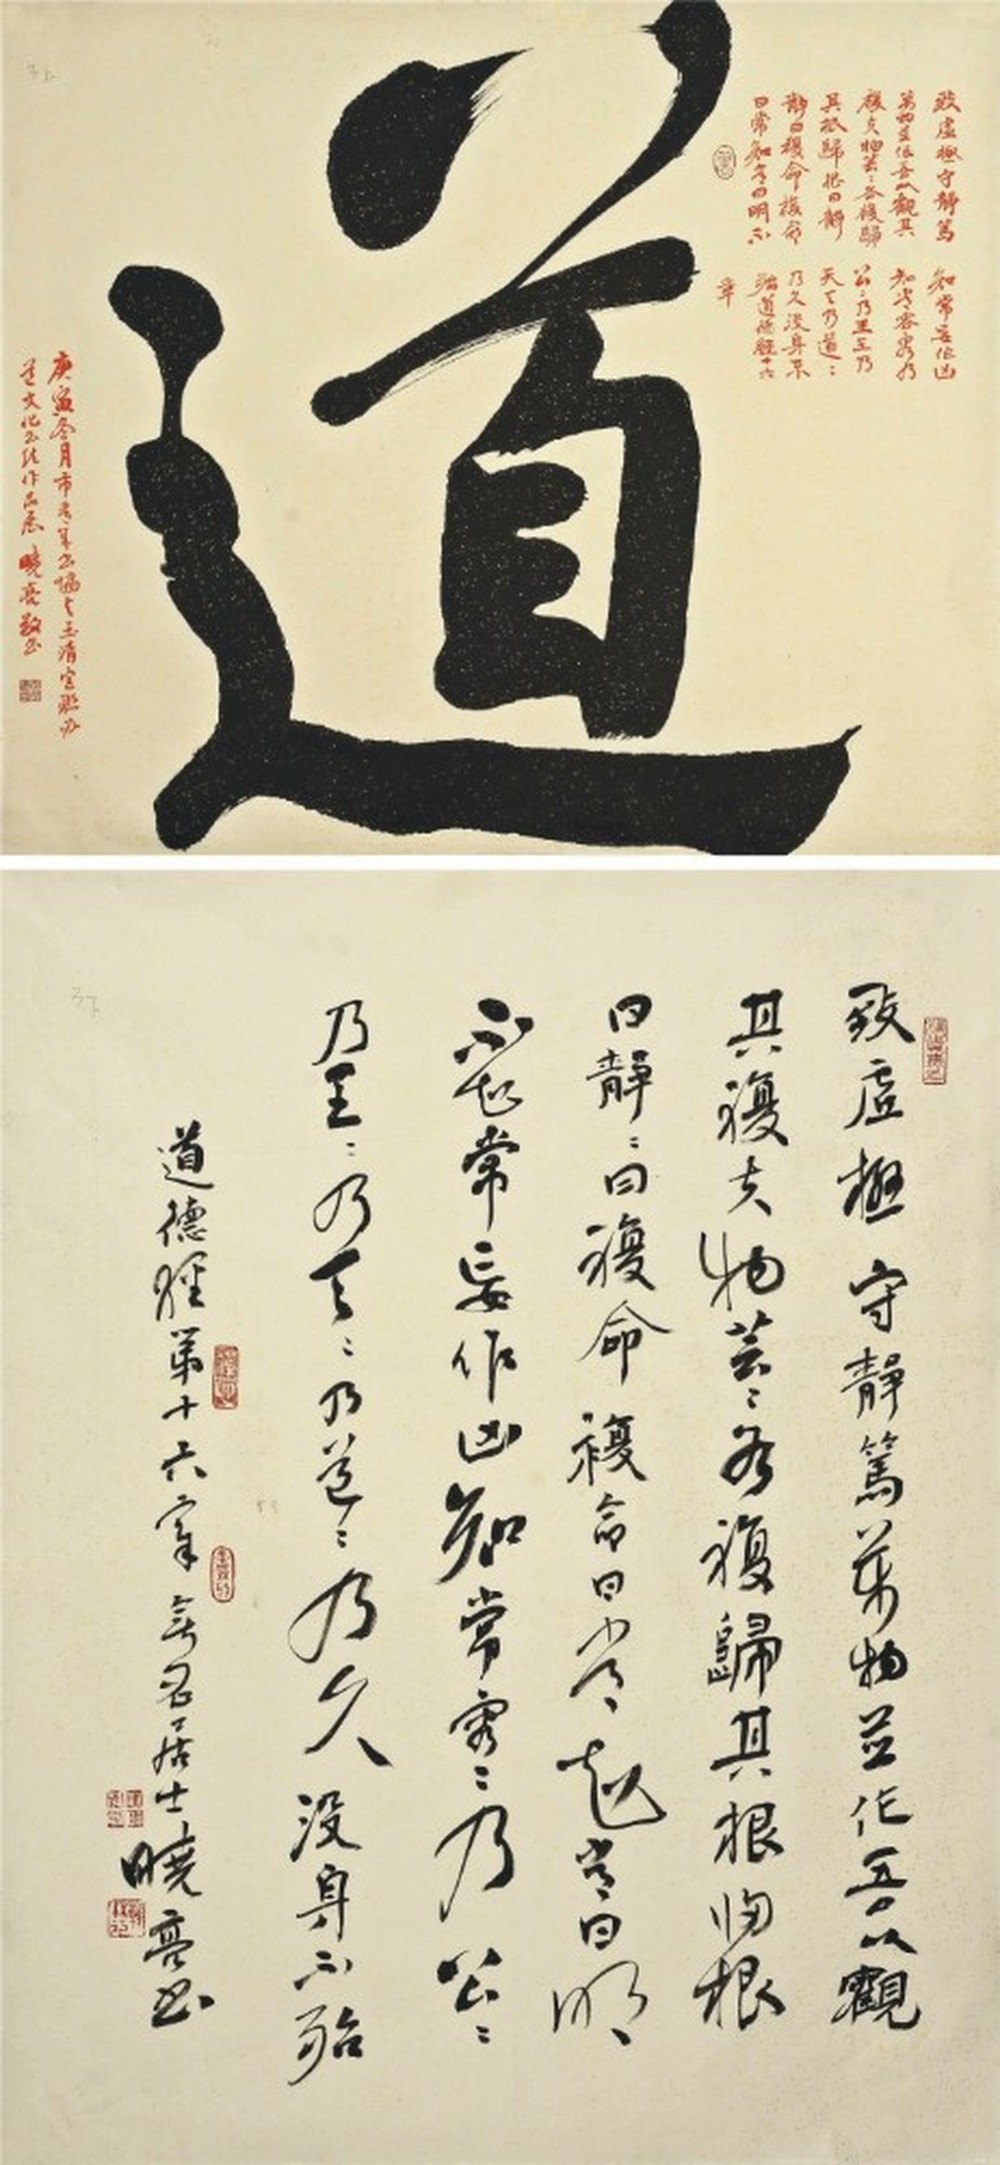 道
致虛極守靜篤
萬物並作吾以觀其
複夫物芸〻各複歸
其根歸根曰靜
靜曰複命複命
曰常知常曰明不
知常妄作凶
知常容容乃
公〻乃王王乃
天天乃道〻
乃久沒身不
殆道德經十六
章
庚寅冬月市老年书协与玉清宫联办
道文化书法作品展 曉亮敬书
致虛極守靜篤萬物並作吾以觀
其複夫物芸〻各複歸其根归根
曰靜〻曰複命複命曰常知常曰明
不知常妄作凶知常容〻乃公〻
乃王〻乃天〻乃道〻乃久沒身不殆
道德經第十六章 無名居士 曉亮书